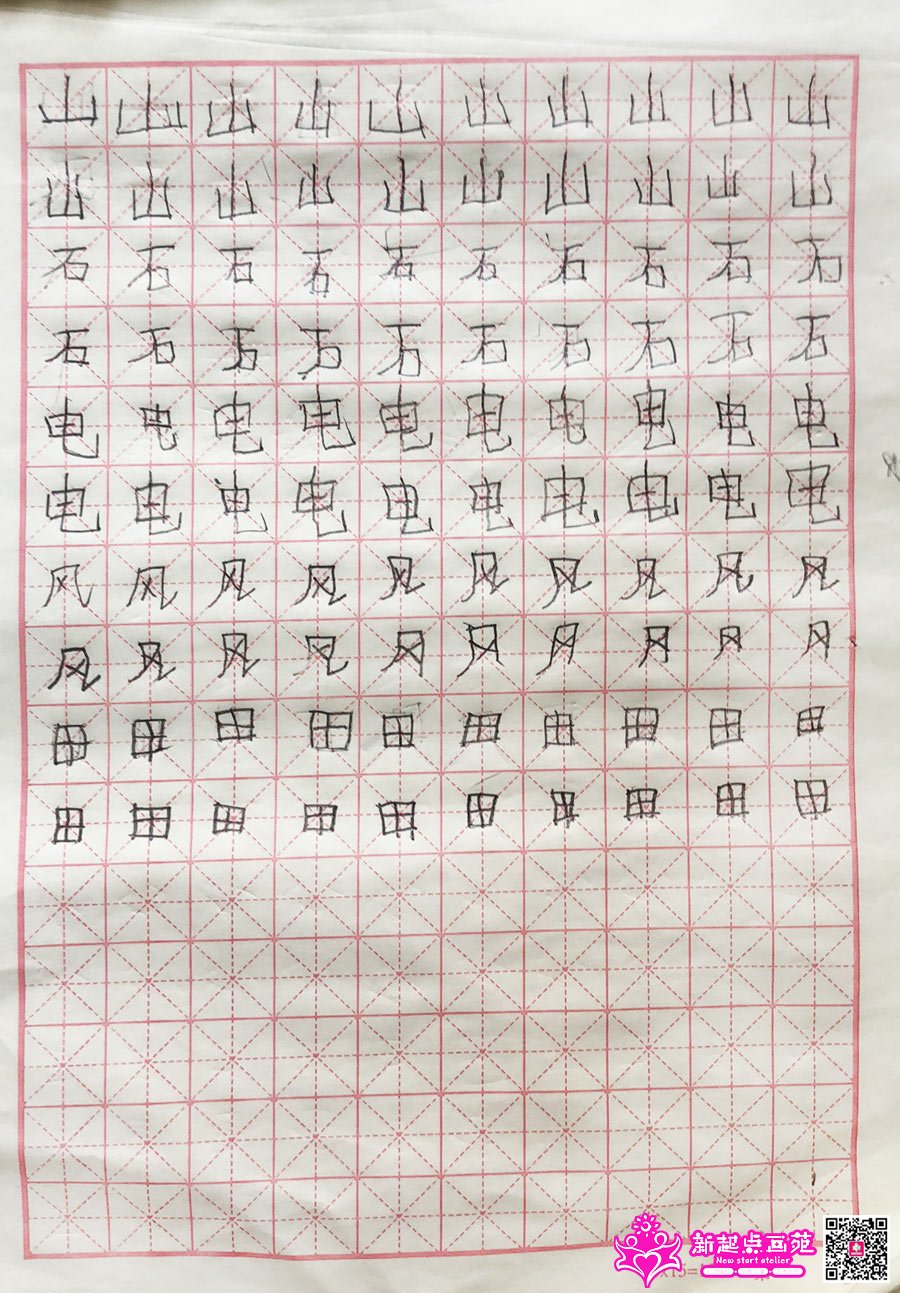 山山山山山山山山山山
山山山山山山山山山山
石石石石石石石石石石
石石石石石石石石石石
电电电电电电电电电电
电电电电电电电电电电
风风风风风风风风风风
风风风风风风风风风风
田田田田田田田田田田
田田田田田田田田田田
新起点画苑
New start atelier